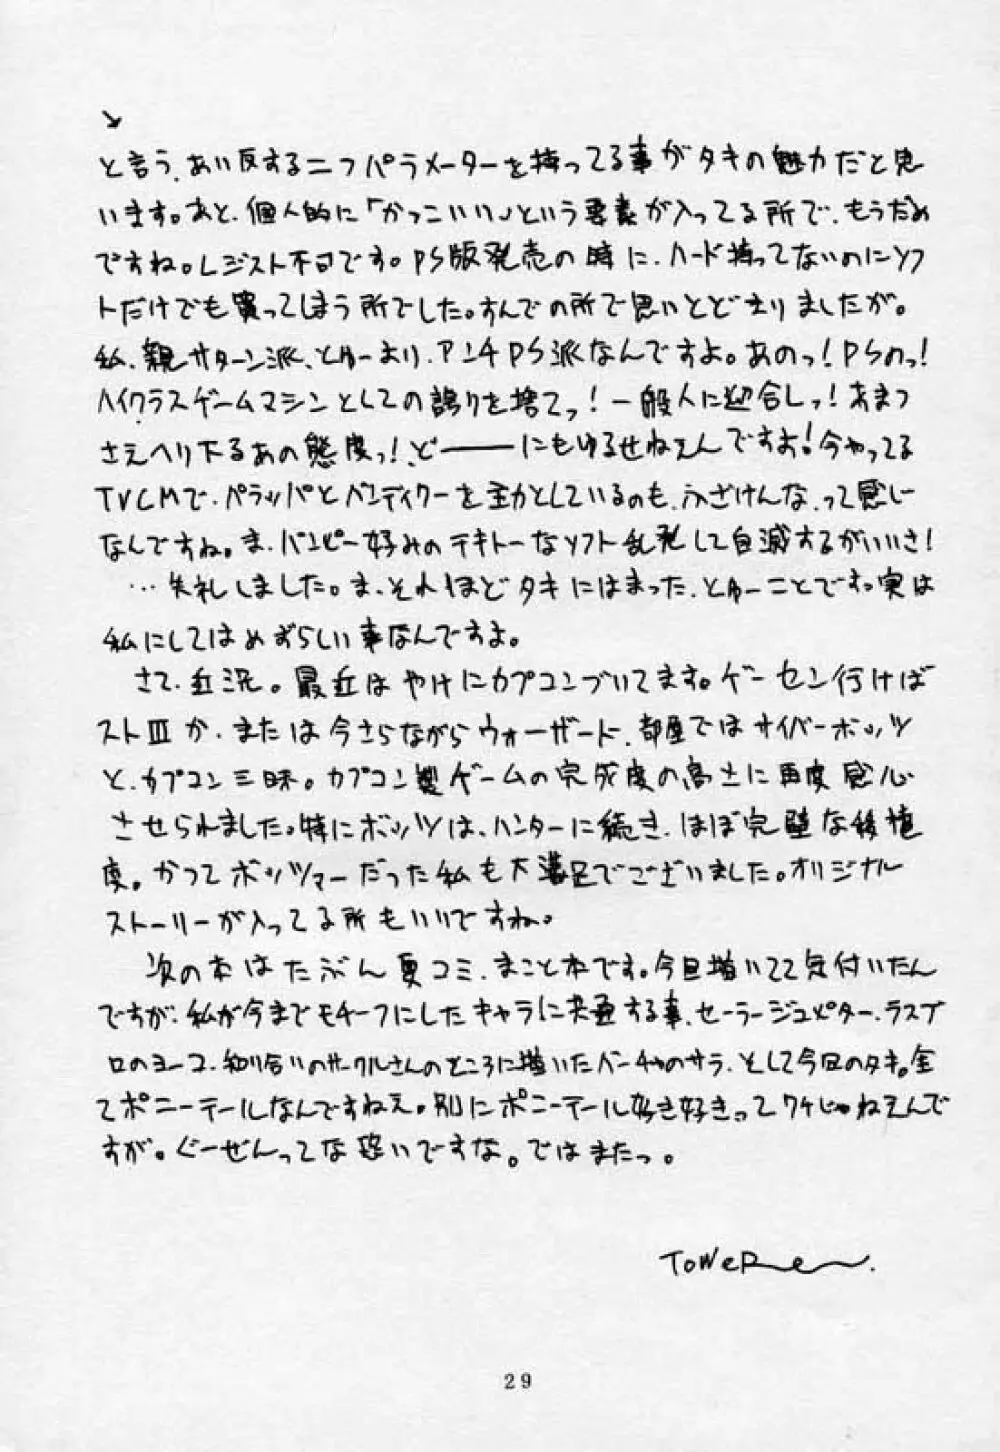 と言う、あい反する二つパラメーターを持ってる事がタキの魅力だと思
います。あと、個人的に「かっこいい」という要素が入ってる所で、もうだめ
ですね。レジスト不可です。PS版発売の時に、ハード持ってないのにソフ
トだけでも買ってしまう所でした。すんでの所で思いとどまりましたが。
私、親サターン派、とゆーより、アンチPS派なんですよ。あのっ!PSのっ!
ハイクラスゲームマシンとしての誇りを捨てっ!一般人に迎合しっ!あまつ
さえへり下るあの態度っ!、ど――にもゆるせねえんですよ!今やってる
TVCMで、パラッパとバンディクーを主力としているのも、ふざけんな、って感じ
なんですね。ま、パンピー好みのテキトーなソフト乱発して自滅するがいいさ!
…失礼しました。ま、それほどタキにはまった、とゆーことですっ実は
私にしてはめずらしい事なんですよ。
さて、近況。最近はやけにカプコンづいてます。ゲーセン行けば
ストⅢか、または今さらながらウォーザード、部屋ではサイバーボッツ
と、カプコン三昧。カプコン製ゲームの完成度の高さに再度感心
させられました。特にボッツは、ハンターに続き、ほぼ完璧な移植
度。かつてボッツァーだった私も大満足でございました。オリジナル
ストーリーが入ってる所もいいですね。
次の本はたぶん夏コミ、まこと本です。今回描いてて気付いたん
ですが、私が今までモチーフにしたキャラに共通する事、セーラージュピター、ラスブ
ロのヨーコ、知り合いのサークルさんのところに描いたバーチャのサラ、そして今回のタキ。全
てポニーテールなんですねえ。別にポニーテール好き好きってワケじゃねえんで
すが。ぐーぜんってな恐いですな。ではまたっ。
29